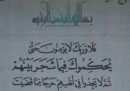 بسم الله الرحمن الرحيم
فلا وربك لا يؤمنون حتى
يحكموك فيما شجر بينهم
ثم لا يجدوا في أنفسهم حرجا مما قضيت